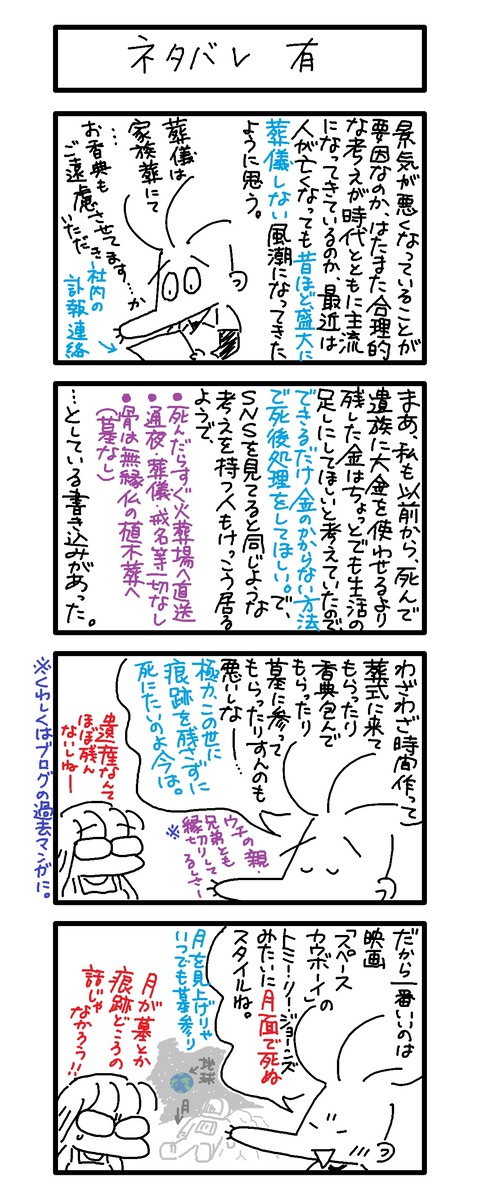 ネタバレ 有
景気が悪くなっていることが
要因なのか、はたまた合理的
な考えが時代とともに主流
になってきているのか、最近は
人が亡くなっても昔ほど盛大に
葬儀しない風潮になってきた
ように思う。
葬儀は
家族葬にて
…
お香典も
ご遠慮させてます…か
いただき
社内の
訃報連絡
まあ、私も以前から、死んで
遺族に大金を使わせるより
残した金はちょっとでも生活の
足しにしてほしいと考えていたので
できるだけ金のかからない方法
で死後処理をしてほしい。で、
SNSを見てると同じような
考えを持つ人もけっこう居る
ようで、
●死んだらすぐ火葬場へ直送
●通夜・葬儀、戒名等一切なし
●骨は無縁仏の植木葬へ
(墓なし)
…としている書き込みがあった。
わざわざ時間作って
葬式に来て
もらったり
香典包んで
もらったり
墓に参って
もらったりすんのも
悪いしなー…
極力、この世に
痕跡を残さずに
死にたいのよ今は。
ウチの親・
兄弟とも
縁切りして
るしさー
※
遺産なんて
ほぼ残ん
ないしねー
※くわしくはブログの過去マンガに。
だから一番いいのは
映画
「スペース
カウボーイ」の
トミー・リージョーンズ
みたいに月面で死ぬ
スタイルね。
月を見上げりゃ
いつでも墓参り
地球
月
月が墓とか
痕跡どころの
話じゃ
なかろう!!